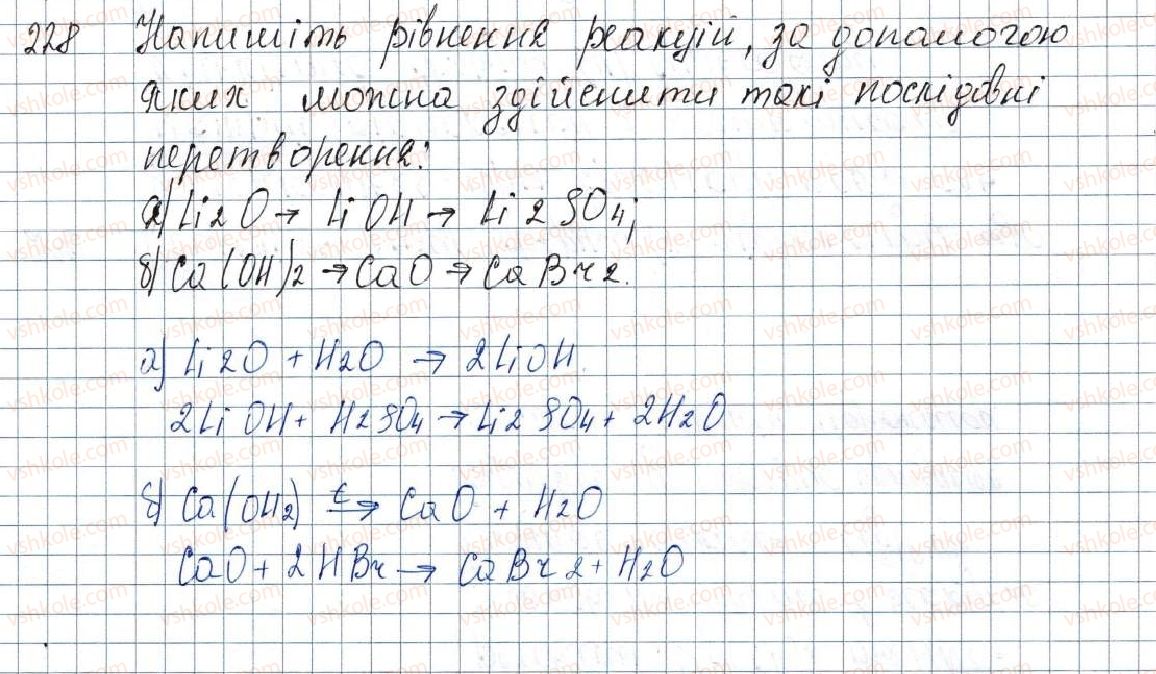 228 Напишіть рівняння реакцій, за допомогою
яких можна здійснити такі послідовні
перетворення:
а) Li2O → LiOH → Li2SO4;
б) Ca(OH)2 → CaO → CaBr2.
а) Li2O + H2O → 2LiOH.
2LiOH + H2SO4 → Li2SO4 + 2H2O
б) Ca(OH2) t→ CaO + H2O
CaO + 2HBr → CaBr2 + H2O
vshkole.com